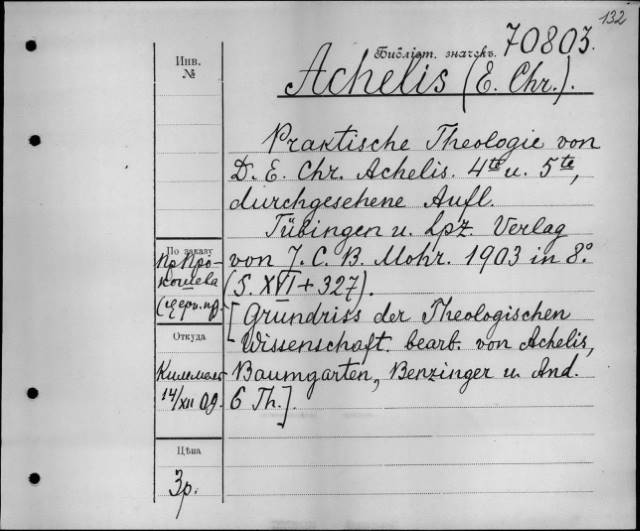 132
Библіот. значекъ. 70803.
Инв.
№
Achelis (E. Chr.).
Praktische Theologie von
D. E. Chr. Achelis. 4te u. 5te,
durchgesehene Aufl.
Tübingen u. Lpz. Verlag
von J. C. B. Mohr. 1903 in 8°.
(S. XVI + 327).
[Grundriss der Theologischen
Wissenschaft. bearb. von Achelis,
Baumgarten, Benzinger u. And.
6 Th.].
По заказу
пр. Про-
кошева
(церк. пр.)
Откуда
14/XII 09.
Цѣна
3р.